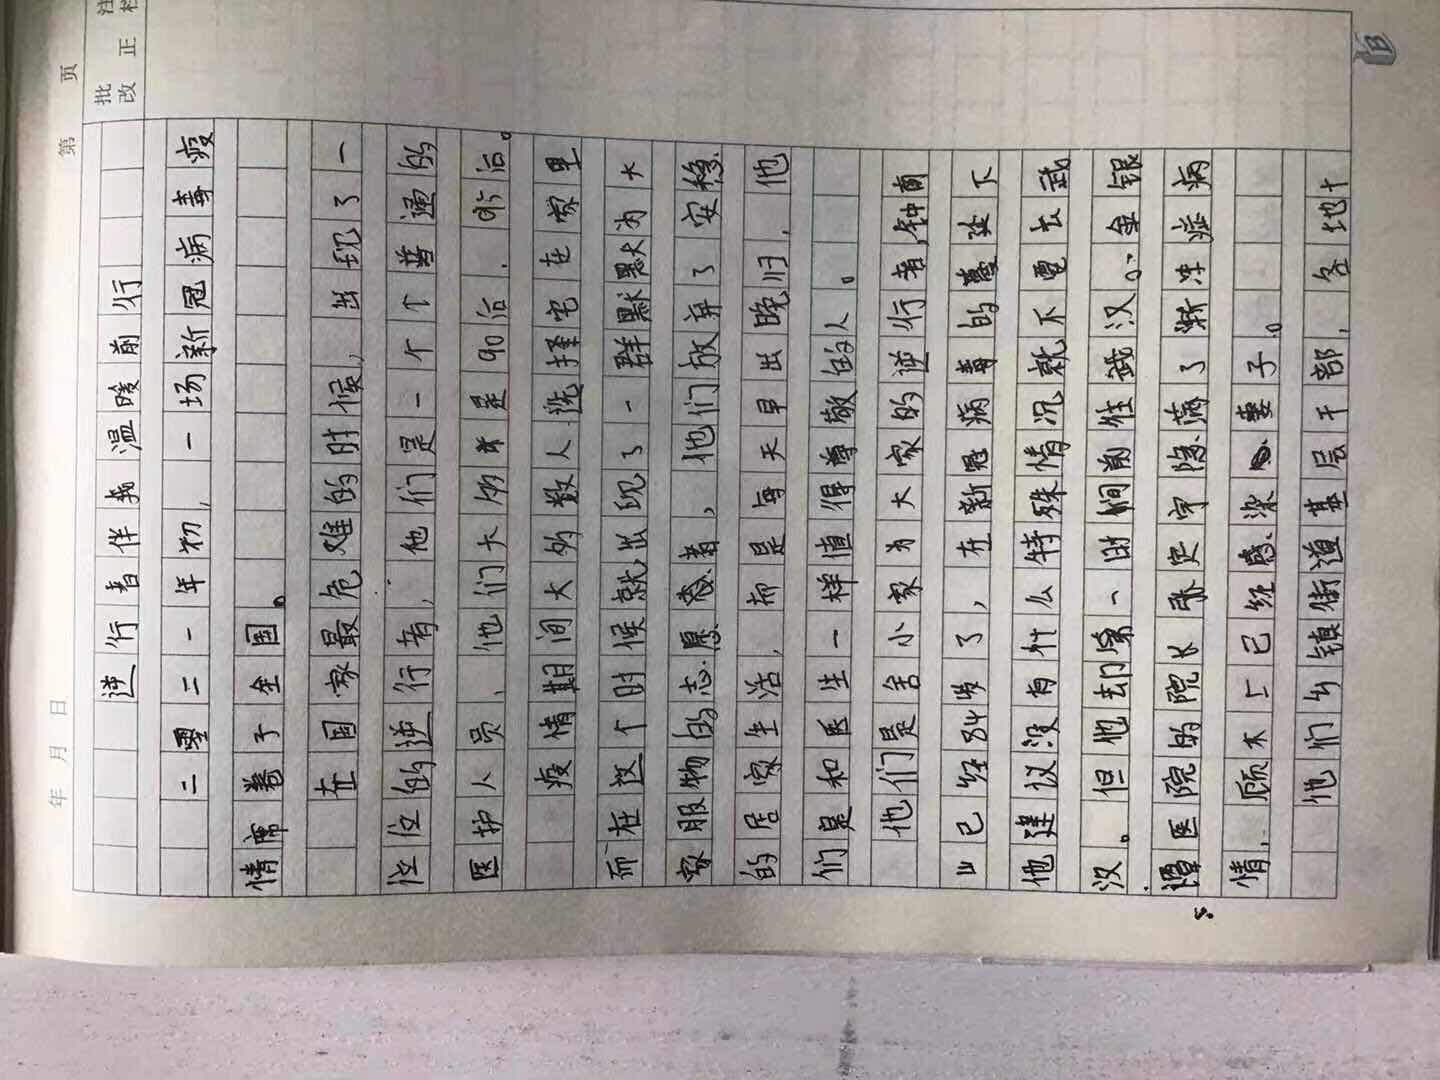 年 月 日 第 页
批改 注 正
逆行者伴我温暖前行
二零二一年初，一场新冠病毒疫
情席卷了全国。
在国家最危难的时候，出现了一
位位的逆行者，他们是一个个普通的
医护人员，他们大多数是90后、95后。
疫情期间大多数人选择宅在家里
而在这个时候就出现了一群默默为大
家服物的志愿者，他们放弃了安稳
的居家生活，而是每天早出晚归，他
们是和医生一样值得尊敬的人。
他们是舍小家为大家的逆行者，钟南
山已经84岁了，在新冠病毒的蔓延下
他建议没有什么特殊情况就不要去武
汉。但他却第一时间前往武汉。金银
潭医院的院长张定宇隐瞒了渐冻症病
情，顾不上已经感染妻子。
他们乡镇街道基层干部，各地